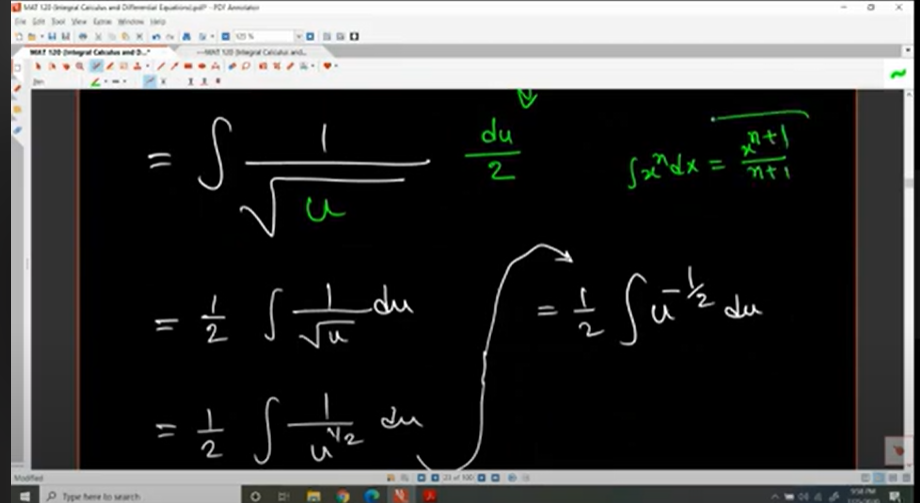 MAT 120 (Integral Calculus and Differential Equations).pdf* - PDF Annotator
File Edit Tool View Extras Window Help
125 %
MAT 120 (Integral Calculus and D...*
MAT 120 (Integral Calculus and...
Pen
= ∫ 1/√u du/2
∫xⁿdx = xⁿ⁺¹/n+1
= 1/2 ∫ 1/√u du
= 1/2 ∫ u^-1/2 du
= 1/2 ∫ 1/u^1/2 du
Modified
23 of 100
Type here to search
9:58 PM